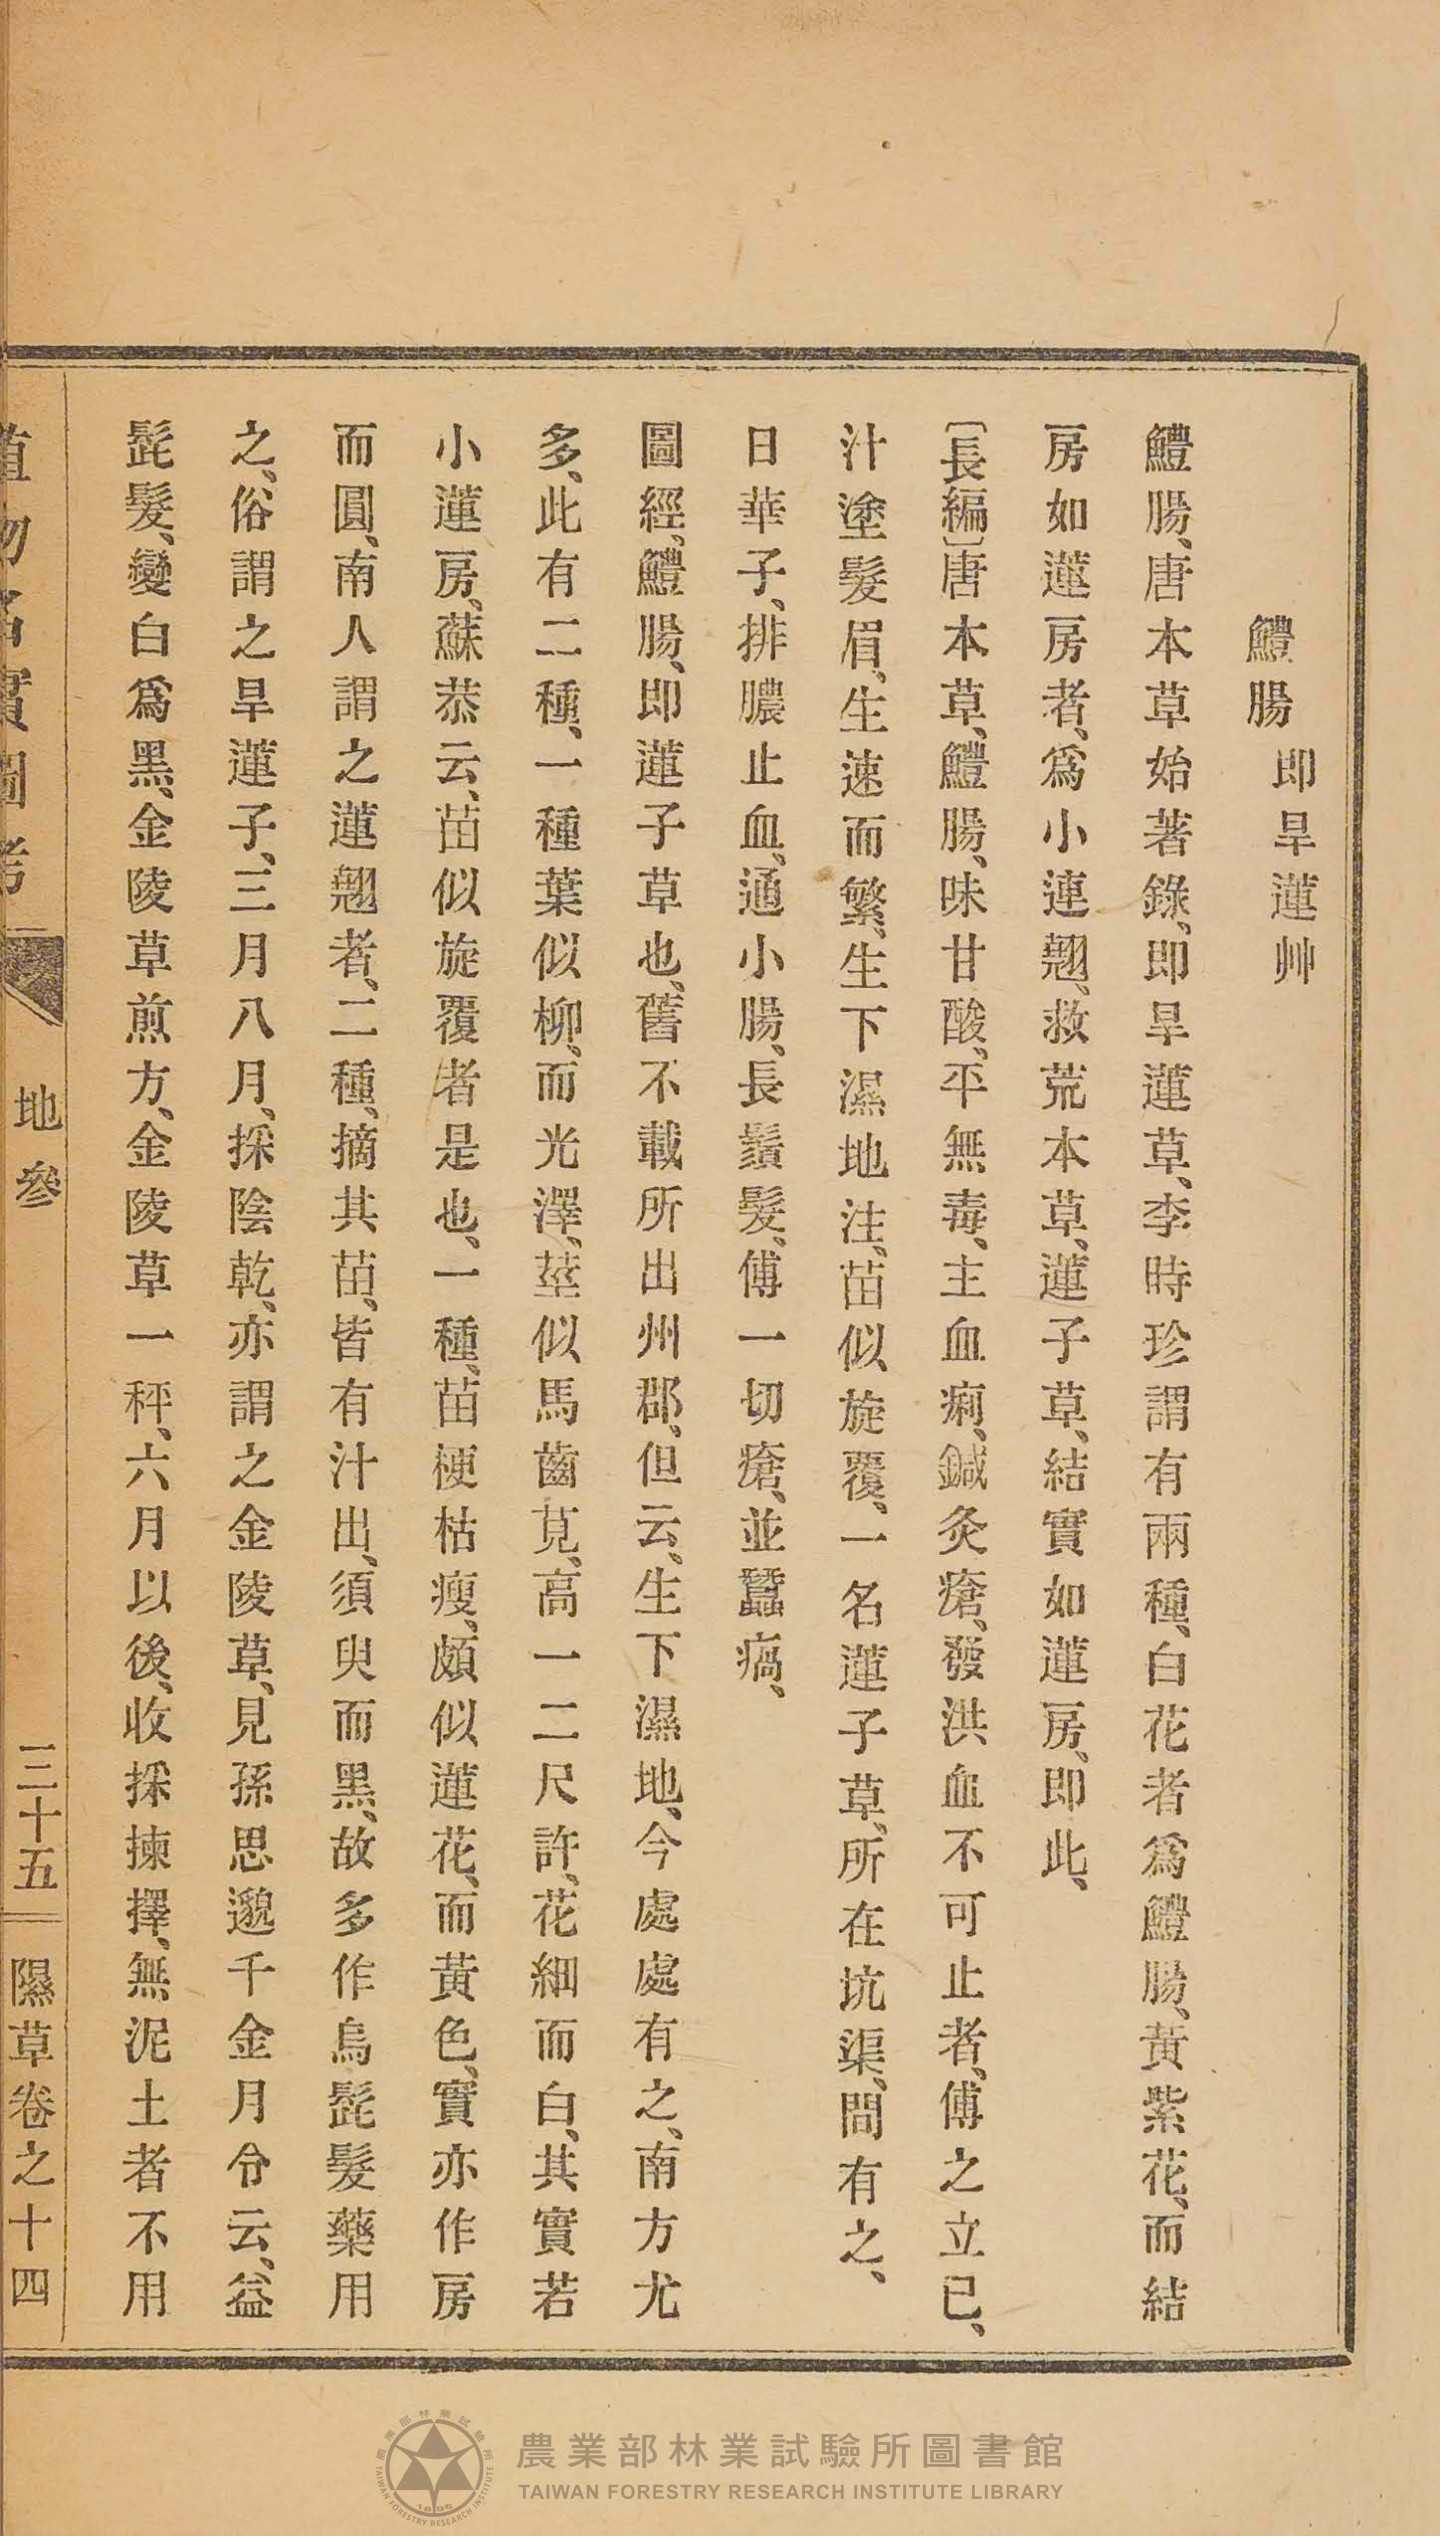 鱧腸 即旱蓮艸
鱧腸、唐本草始著錄、即旱蓮草、李時珍謂有兩種、白花者爲鱧腸、黃紫花、而結
房如蓮房者、爲小連翹、救荒本草、蓮子草、結實如蓮房、即此、
〔長編〕唐本草、鱧腸、味甘酸、平無毒、主血痢、鍼灸瘡、發洪血不可止者、傅之立已、
汁塗髮眉、生速而繁、生下濕地注、苗似旋覆、一名蓮子草、所在坑渠、間有之、
日華子、排膿止血、通小腸、長鬚髮、傅一切瘡、並蠶瘑、
圖經、鱧腸、即蓮子草也、舊不載所出州郡、但云、生下濕地、今處處有之、南方尤
多、此有二種、一種葉似柳、而光澤、莖似馬齒莧、高一二尺許、花細而白、其實若
小蓮房、蘇恭云、苗似旋覆者是也、一種、苗梗枯瘦、頗似蓮花、而黃色、實亦作房
而圓、南人謂之蓮翹者、二種、摘其苗、皆有汁出、須臾而黑、故多作烏髭髮藥用
之、俗謂之旱蓮子、三月八月、採陰乾、亦謂之金陵草、見孫思邈千金月令云、益
髭髮、變白爲黑、金陵草煎方、金陵草一秤、六月以後、收採揀擇、無泥土者不用
植物名實圖考 地參 三十五 隰草卷之十四
農業部林業試驗所圖書館
TAIWAN FORESTRY RESEARCH INSTITUTE LIBRARY
農業部林業試驗所
TAIWAN FORESTRY RESEARCH INSTITUTE
1896